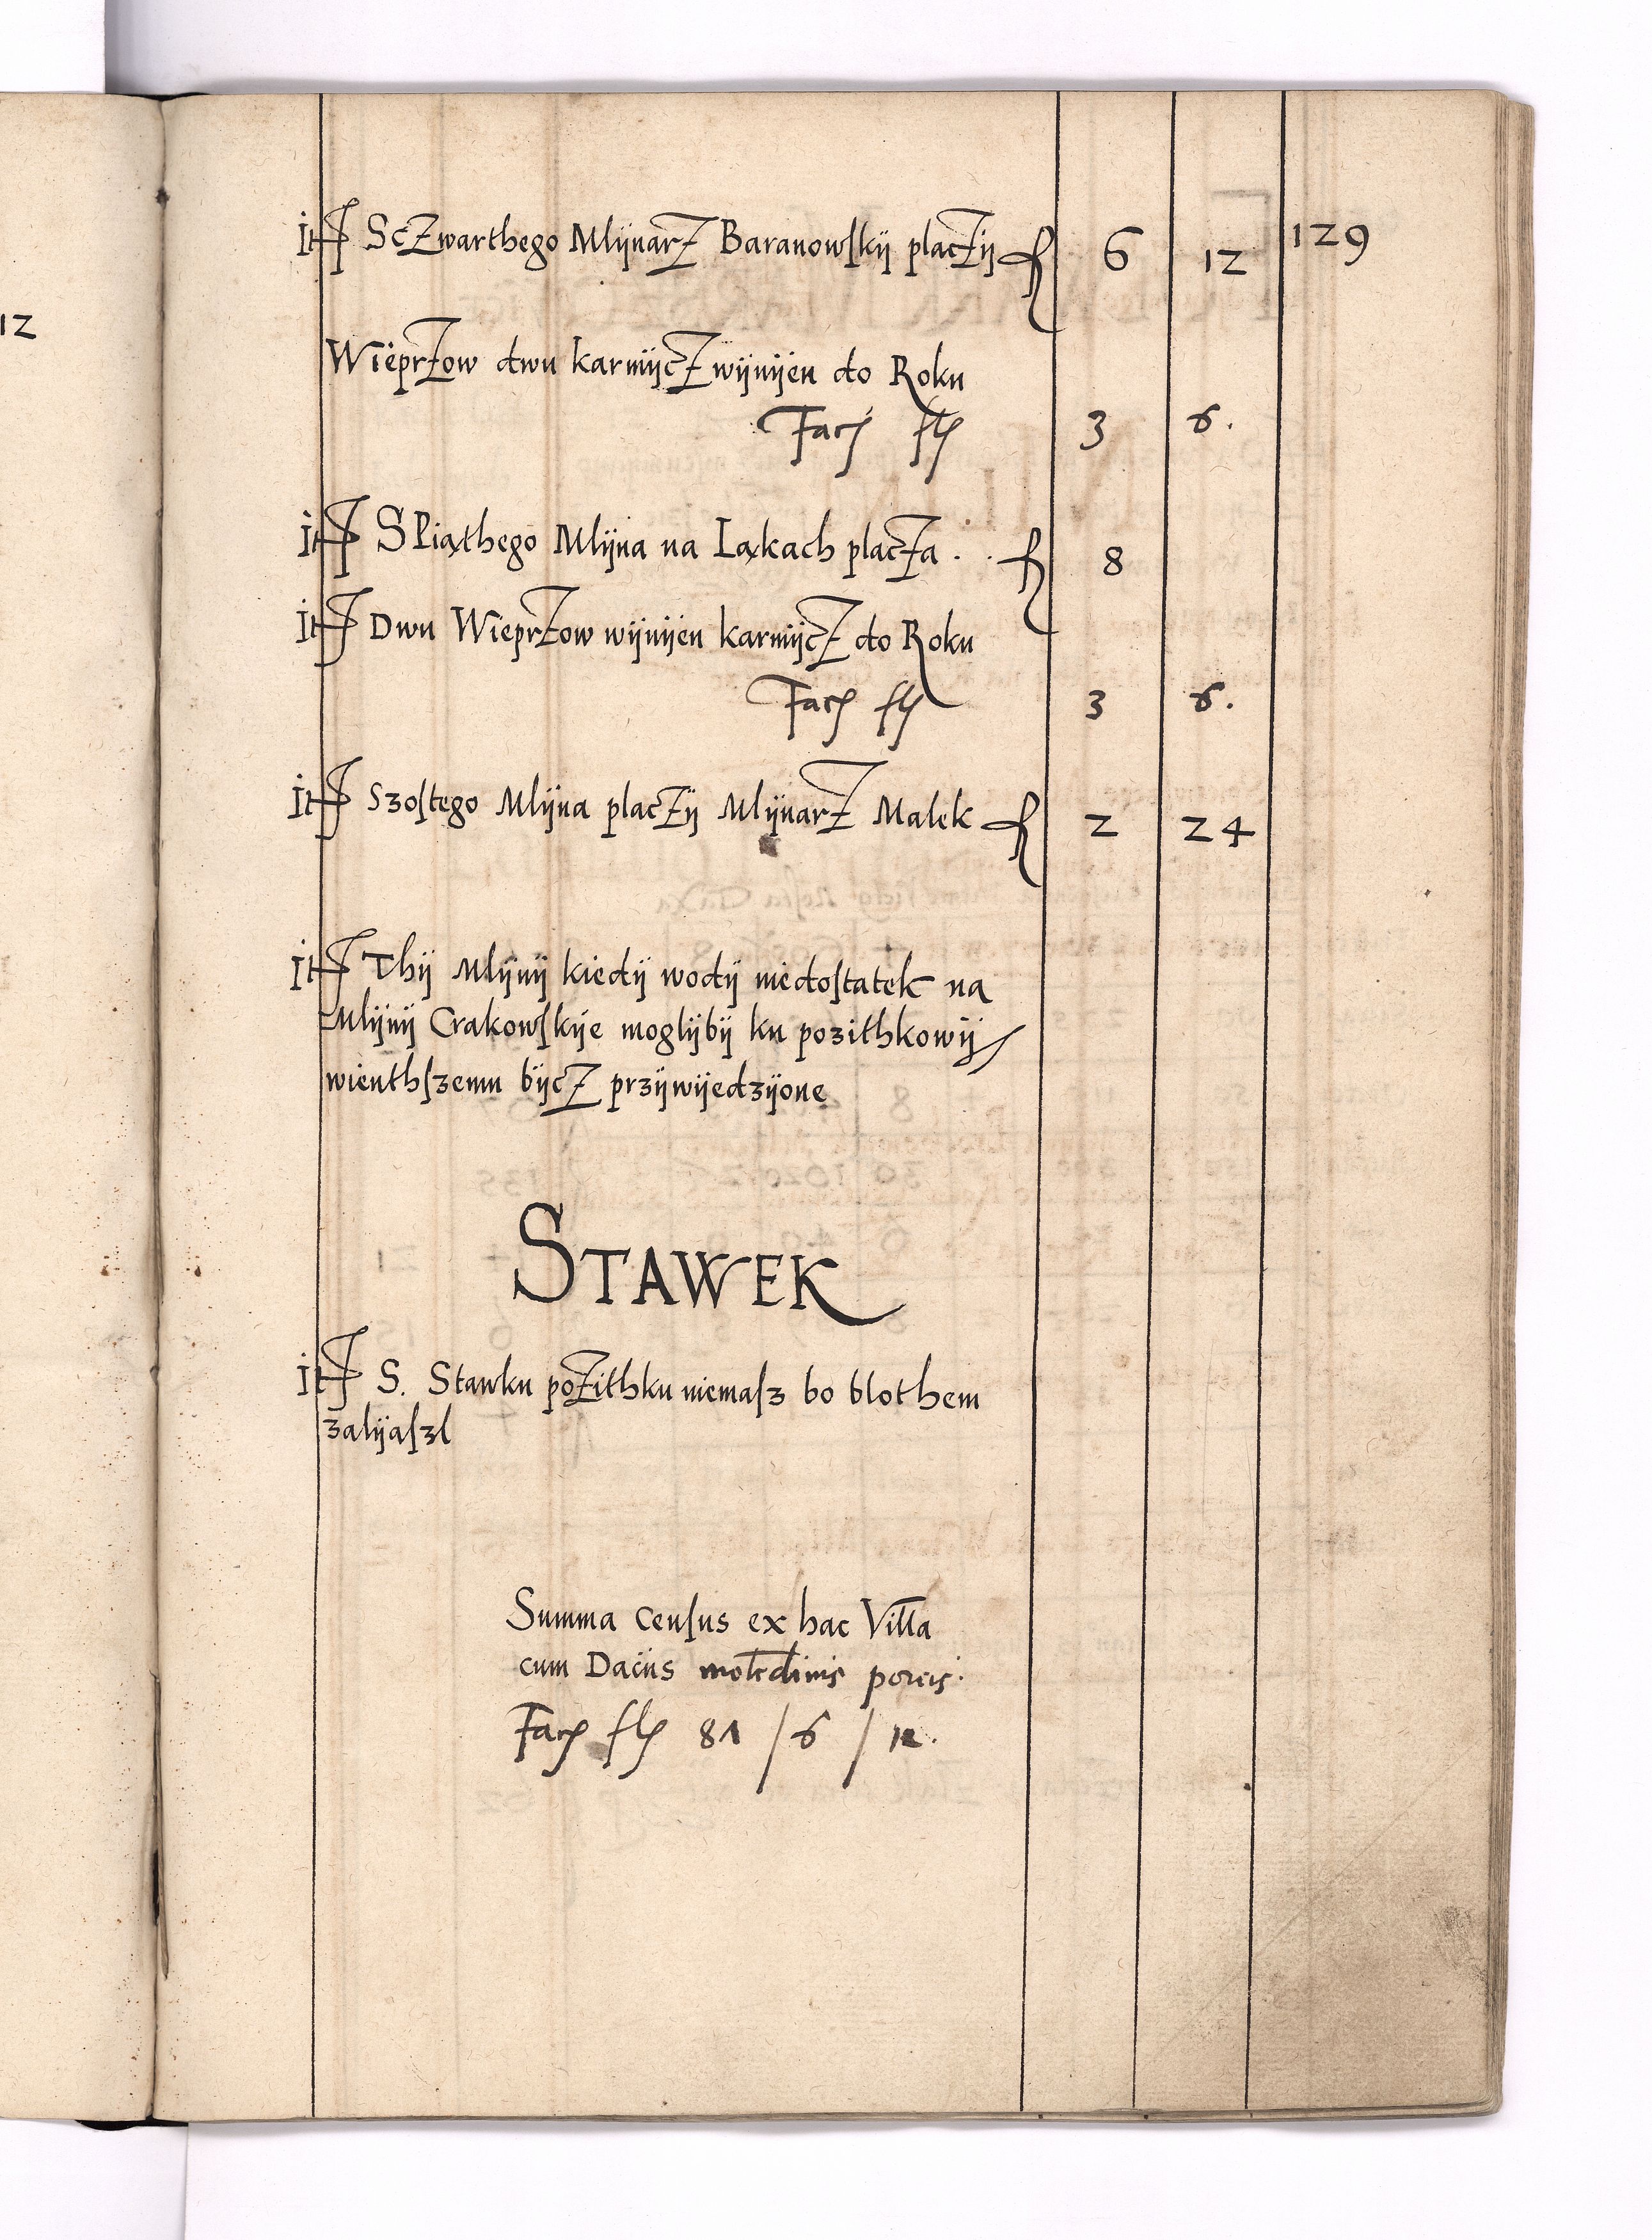 129
12
Itē SCzwarthego Mlÿnarz Baranowskÿ placzÿ fl 6 12
Wieprzow dwu karmÿcz wÿnÿen do Roku
Facı fl 3 6.
Itē SPiąthego Mlÿna na Łąkach placza . . fl 8
Itē Dwu Wieprzow wÿnÿen karmÿcz do Roku
Facı fl 3 6.
Itē Szostego Mlÿna placzÿ Mlÿnarz Malek fl 2 24
Itē Thÿ Mlÿnÿ kiedÿ wodÿ niedostatek na
Mlÿnÿ Crakowskÿe moglÿbÿ ku pozithkowÿ
wienthszemu bÿcz przÿwÿedzÿone
STAWEK
Itē S. Stawku pozithku niemasz bo blothem
zalÿaszl
Summa Census ex hac Villa
cum Daciis porcis.
Facı fl 81 / 6 / 12.